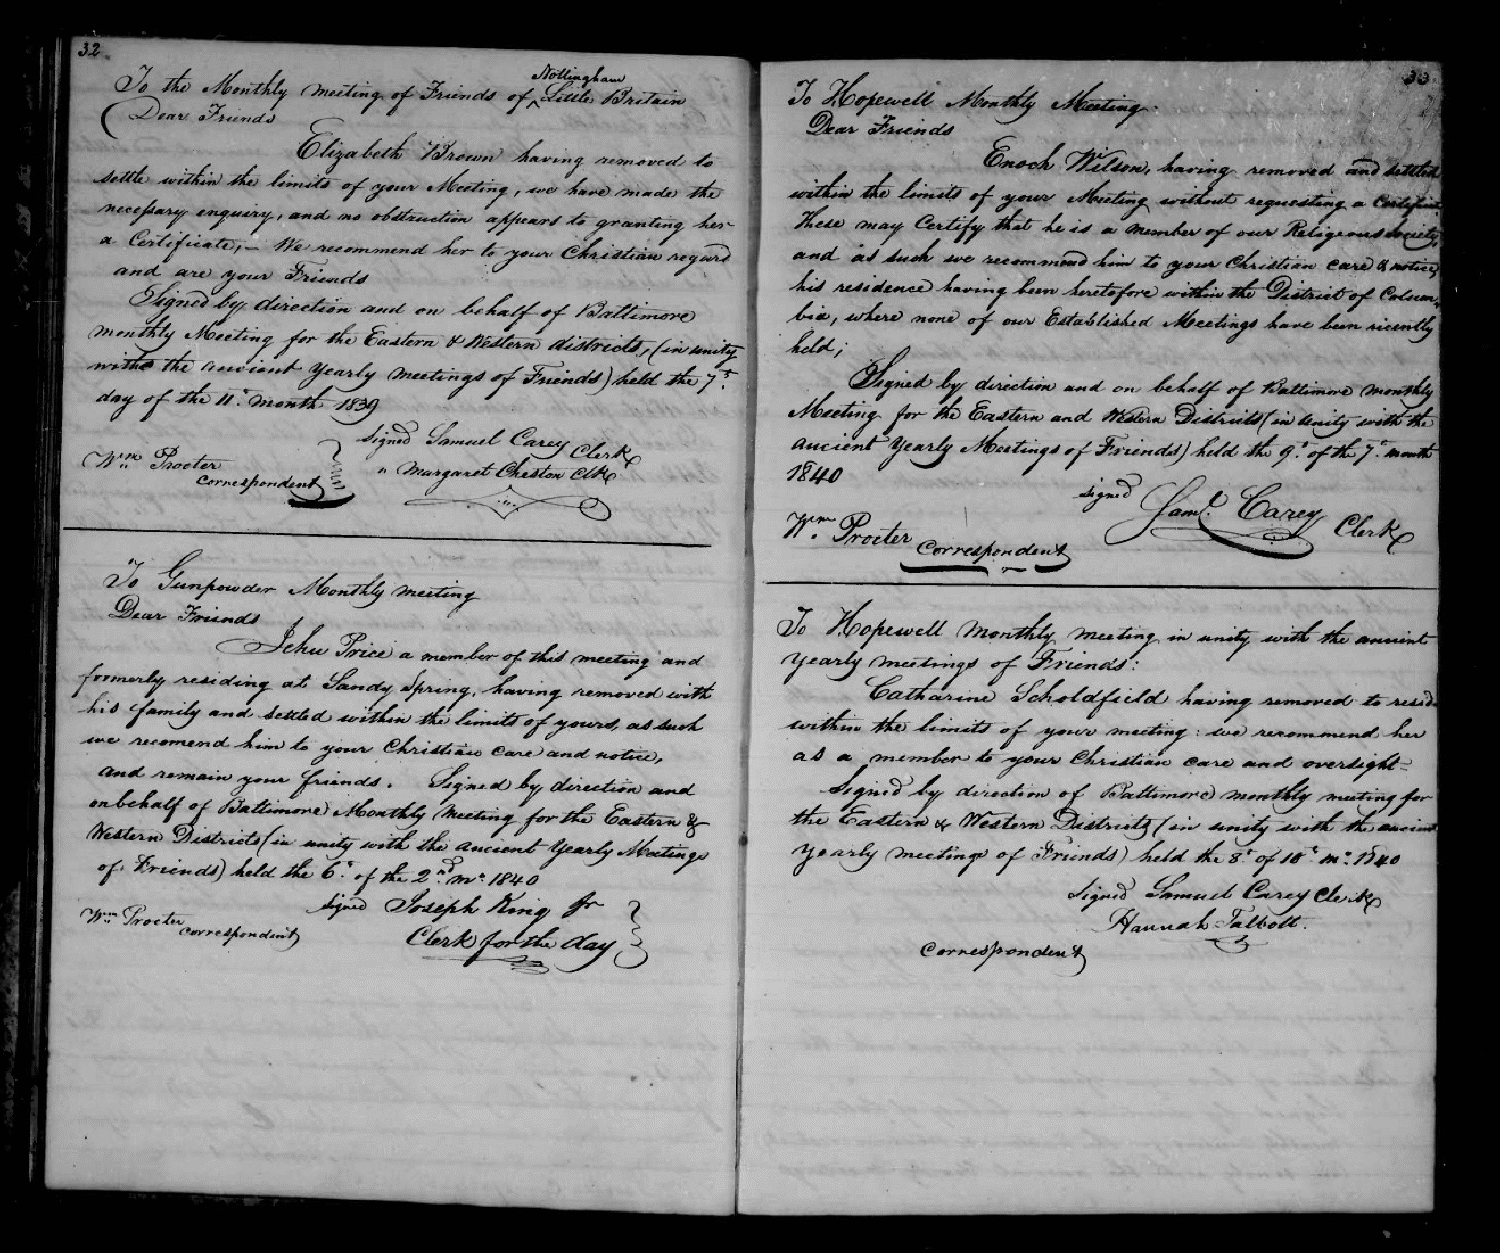 32
To the Monthly meeting of Friends of ^Nottingham Little Britain
Dear Friends
Elizabeth Brown having removed to
settle within the limits of your Meeting, we have made the
necessary enquiry, and no obstruction appears to granting her
a Certificate;– We recommend her to your Christian regard
and are your Friends
Signed by direction and on behalf of Baltimore
monthly Meeting for the Eastern & Western districts, (in unity
with the ancient Yearly Meetings of Friends) held the 7th.
day of the 11th. month 1839
signed Samuel Carey Clerk
" Margaret Cheston Clk
Wm. Procter
Correspondent
To Gunpowder Monthly meeting
Dear Friends
Jehu Price a member of this meeting and
formerly residing at Sandy Spring, having removed with
his family and settled within the limits of yours, as such
we recomend him to your Christian care and notice,
and remain your friends. Signed by direction and
on behalf of Baltimore Monthly Meeting for the Eastern &
Western Districts (in unity with the ancient Yearly Meetings
of Friends) held the 6th. of the 2nd. mo. 1840
signed Joseph King Jr
Clerk for the day
Wm Procter
Correspondent
33
To Hopewell Monthly Meeting.
Dear Friends
Enoch Wilson, having removed and settled
within the limits of your Meeting without requesting a Certificate
These may Certify that he is a member of our Religious society,
and as such we recommend him to your Christian care & notice,
his residence having been heretofore within the District of Colum-
bia, where none of our Established Meetings have been recently
held;
Signed by direction and on behalf of Baltimore monthly
Meeting for the Eastern and Western Districts (in unity with the
ancient Yearly Meetings of Friends) held the 9th. of the 7th. month
1840
signed Saml. Carey Clerk
Wm. Procter
Correspondent
To Hopewell Monthly meeting in unity with the ancient
Yearly meetings of Friends:
Catharine Scholdfield having removed to reside
within the limits of your meeting: we recommend her
as a member to your Christian care and oversight–
Signed by direction of Baltimore monthly meeting for
the Eastern & Western Districts (in unity with the ancient
Yearly meetings of Friends) held the 8th of 10th mo. 1840
Signed Samuel Carey Clerk
Hannah Talbott.
Correspondent